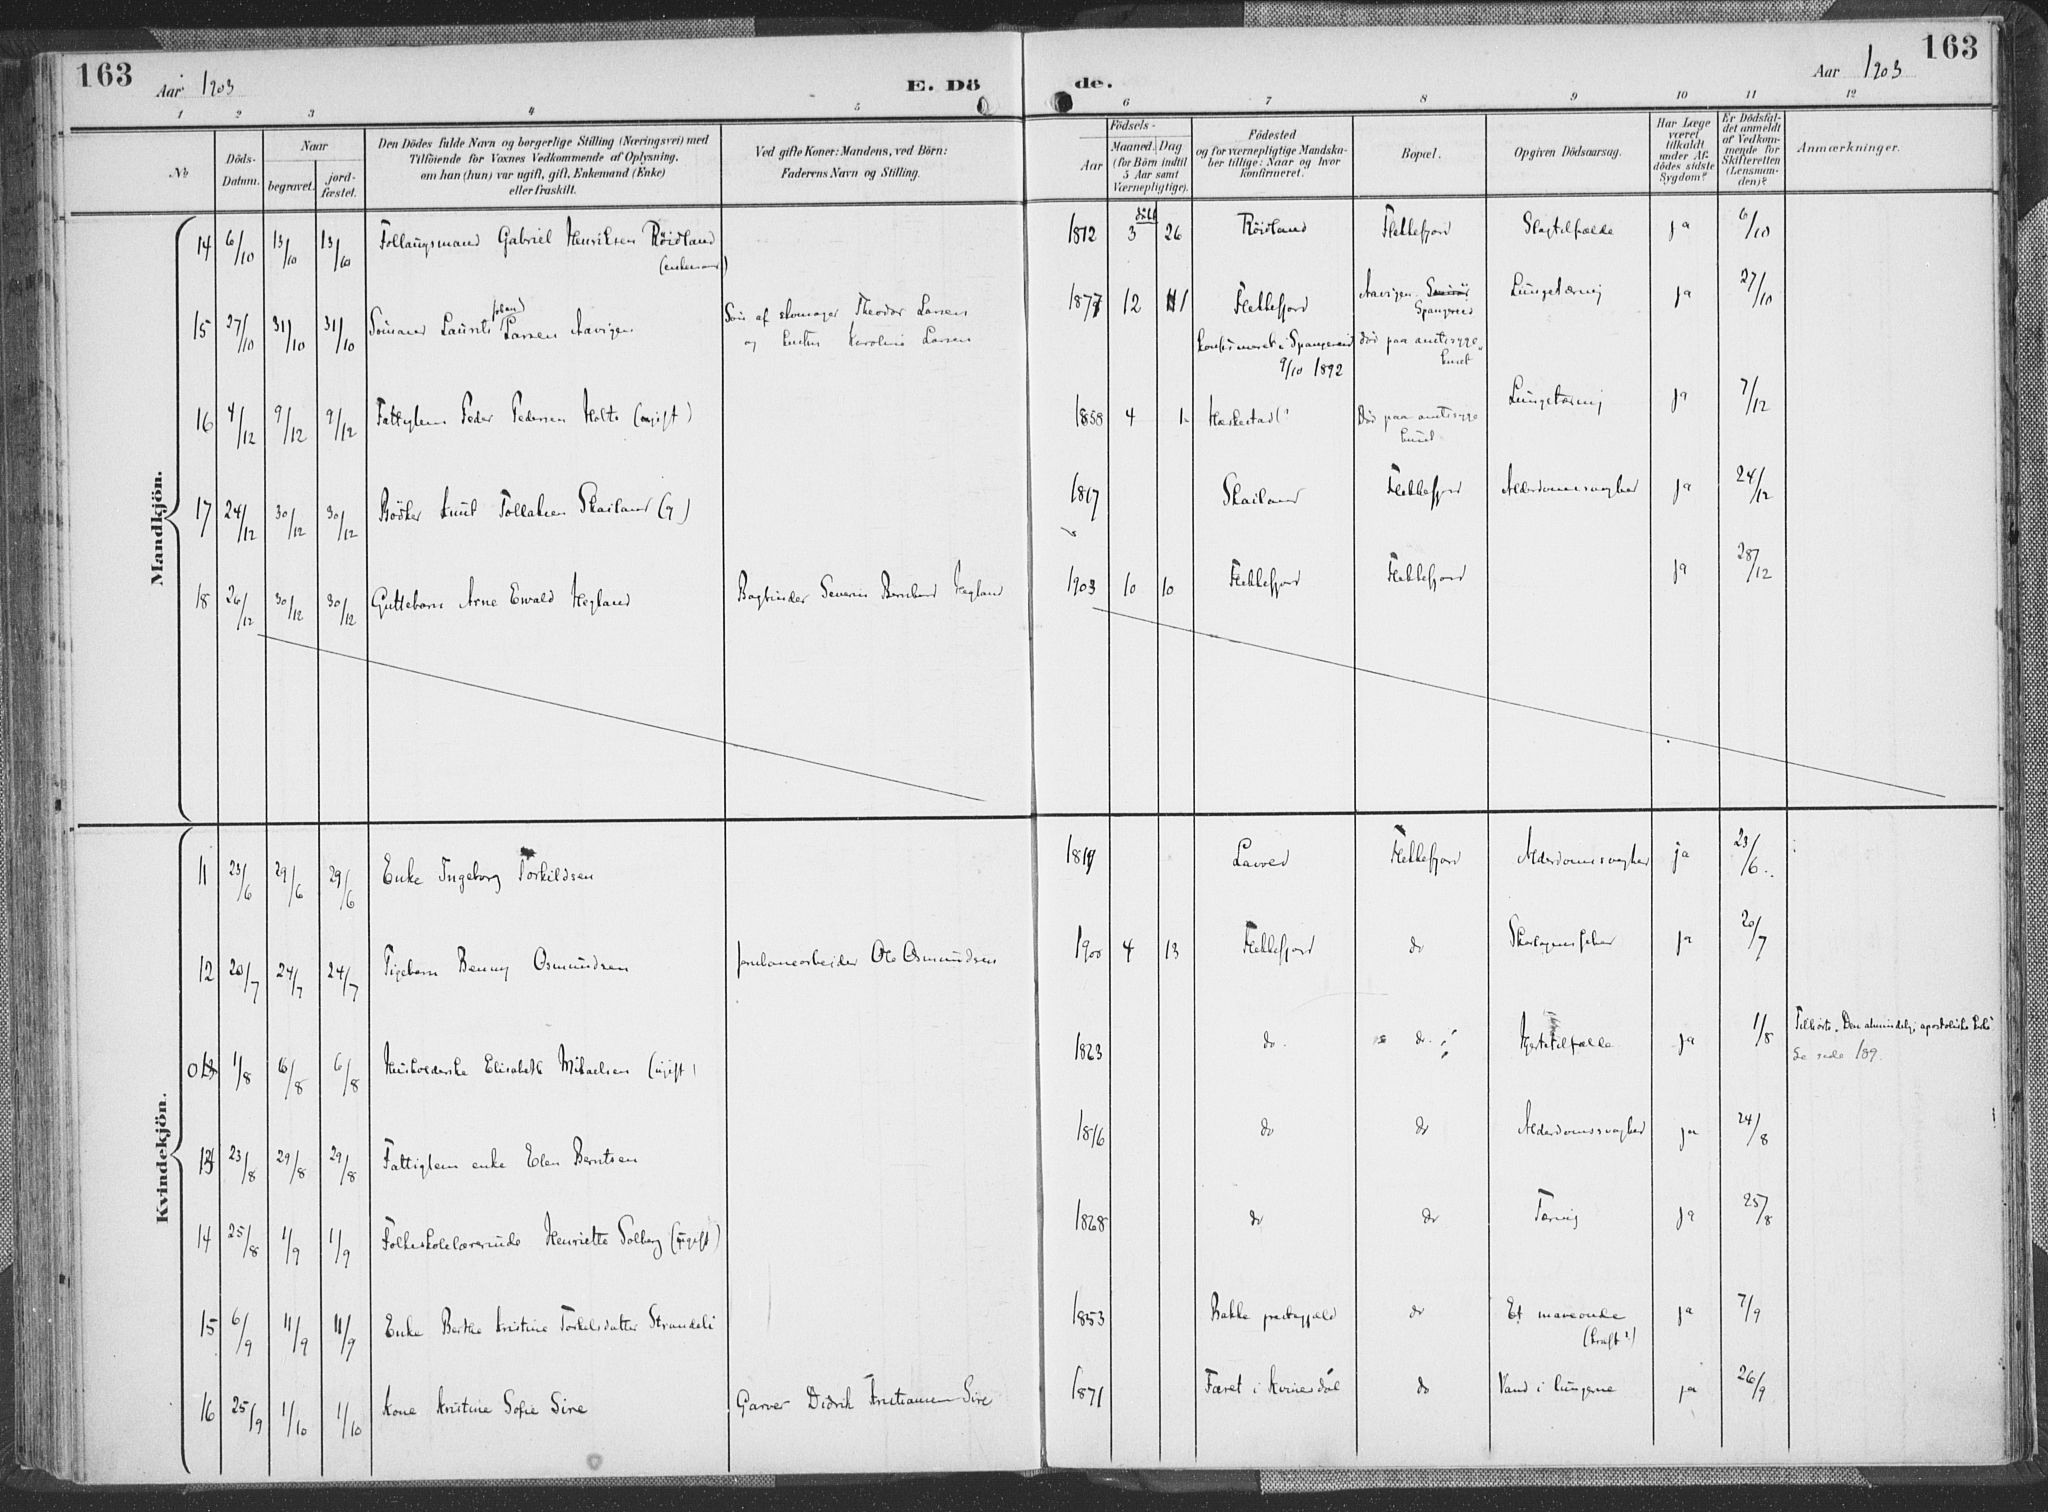 163
Aar 1903
E. Dö
de.
Aar 1903
163
1 2 3 4 5 6 7 8 9 10 11 12
No
Döds-Datum.
Naar
begravet.
jord-fæstet.
Den Dödes fulde Navn og borgerlige Stilling (Næringsvei) med
Tilföiende for Voxnes Vedkommende af Oplysning.
om han (hun) var ugift, gift, Enkemand (Enke)
eller fraskilt.
Ved gifte Koner: Mandens, ved Börn:
Faderens Navn og Stilling.
Födsels-
Aar
Maaned. Dag
(for Börn indtil
5 Aar samt
Værnepligtige).
Födested
og for værnepligtige Mandska-
ber tillige: Naar og hvor
konfirmeret.
Bopæl.
Opgiven Dödsaarsag.
Har Læge
været
tilkaldt
under Af-
dödes sidste
Sygdom?
Er Dödsfal-
det anmeldt
af Vedkom-
mende for
Skifteretten
(Lensman-
den)?
Anmærkninger.
Mandkjön.
14 6/10 13/10 13/10 Follaugsmand Gabriel Henriksen Röidland 1812 3 26 Röidland Flekkefjord Slagtilfælde ja 6/10
döbt
(enkemand)
15 27/10 31/10 31/10 Sömand Laurits Johan Larsen Aavigen Sön af skomager Theodor Larsen 1877 12 1 Flekkefjord Aavigen Spangereid Lungetæring ja 27/10
og hustru Karoline Larsen konfirmeret i Spangereid 9/10 1892 död paa amtssygehuset
16 4/12 9/12 9/12 Fattiglem Peder Pedersen Holte (ugift) 1858 4 1 Hæskestad Död paa amtssygehuset Lungetæring ja 7/12
17 24/12 30/12 30/12 Bödker Knut Tollaksen Skailand (g) 1817 Skailand Flekkefjord Alderdomssvaghed ja 24/12
18 26/12 30/12 30/12 Guttebarn Arne Ewald Hegland Bogbinder Severin Bernhard Hegland 1903 10 10 Flekkefjord Flekkefjord ja 28/12
Kvindekjön.
11 23/6 29/6 29/6 Enke Ingeborg Torkildsen Flekkefjord Alderdomssvaghed ja 23/6
12 20/7 24/7 24/7 Pigebarn Benny Osmundsen jernbanearbeider Ole Osmundsen 1900 4 13 Flekkefjord do Skarlagensfeber ja 20/7
1/8 6/8 6/8 Husholderske Elisabeth Mikaelsen (ugift) 1823 do. do. Hjertetilfælde ja 1/8 Tilhörte "Den almindelige apostoliske kirke"
Se side 189.
13 23/8 29/8 29/8 Fattiglem enke Elen Berntsen 1816 do do Alderdomssvaghed ja 24/8
14 25/8 1/9 1/9 Folkeskolelærerinde Henriette Solberg (ugift) 1868 do do Tæring ja 25/8
15 6/9 11/9 11/9 Enke Berthe Kristine Torkelsdatter Strandeli 1853 Bakke prestegjeld do Et maveonde ja 7/9
(kræft?)
16 25/9 1/10 1/10 Kone Kristine Sofie Sire Garver Didrik Kristiansen Sire 1871 Færet i Kvinesdal do Vand i lungene ja 26/9